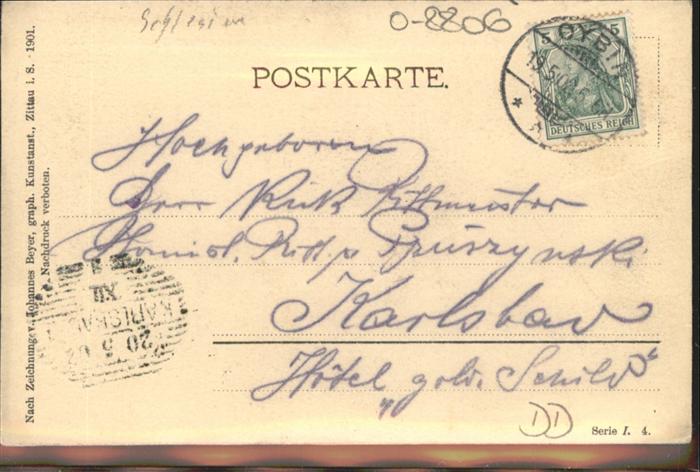 Schlesien
0-8806
POSTKARTE.
OYBIN
19.5.
5 5
DEUTSCHES REICH
Hochgeboren
Herr Rittmeister
Karlsbad
Hôtel "gold. Schild"
KARLSBAD
20 5 02
XII
Nach Zeichnung v. Johannes Beyer, graph. Kunstanst., Zittau i. S. · 1901.
Nachdruck verboten.
DD
Serie I. 4.